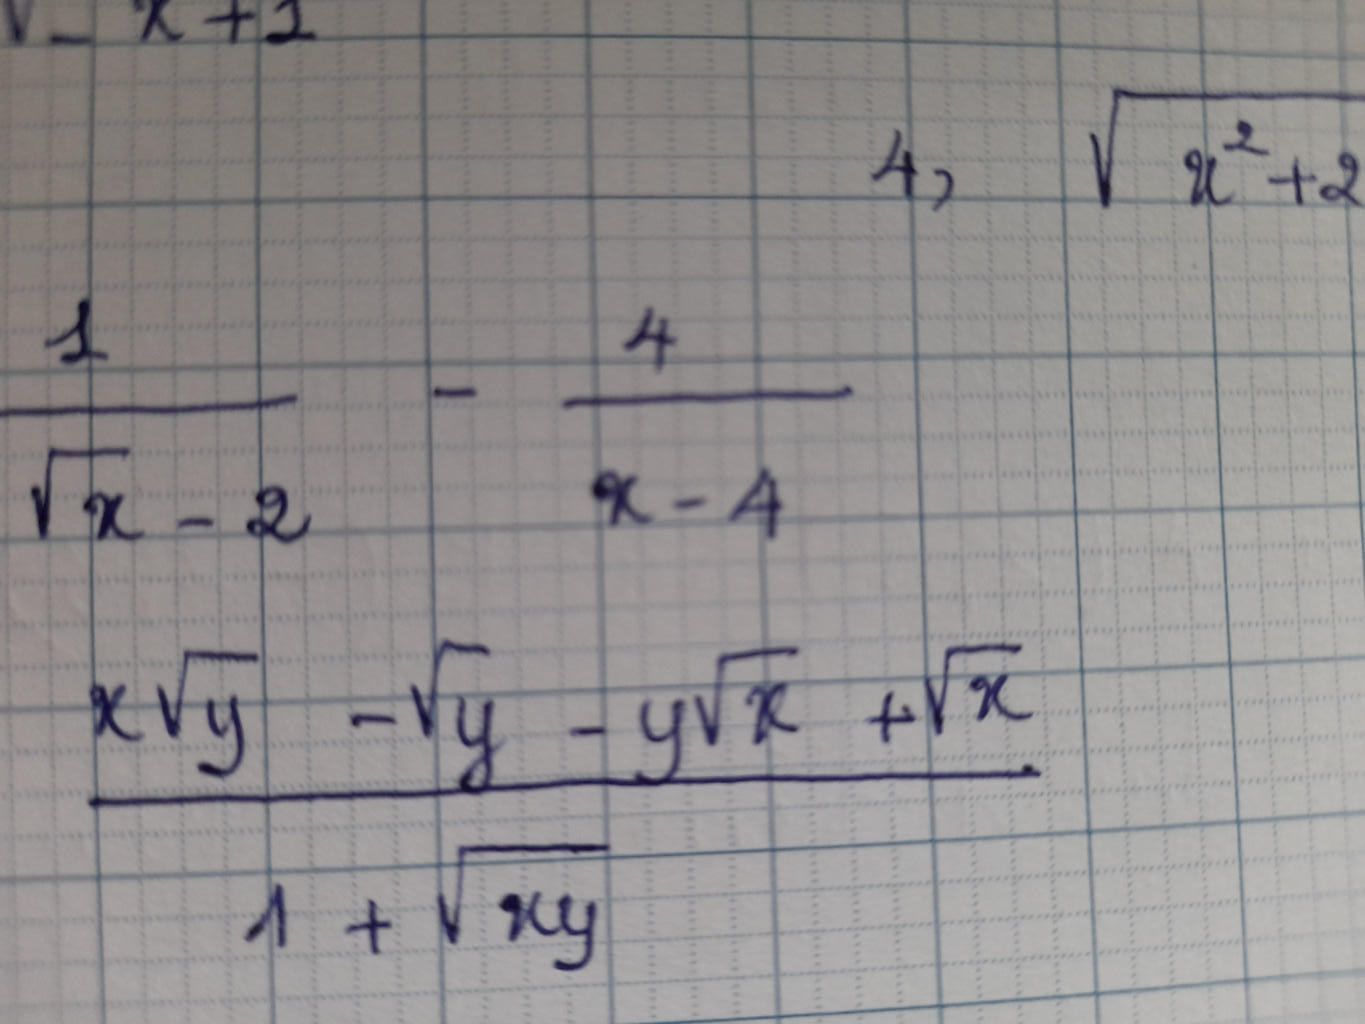 √- x+1
4, √(x²+2
1/(√x - 2) - 4/(x - 4)
(x√y - √y - y√x + √x)/(1 + √(xy))